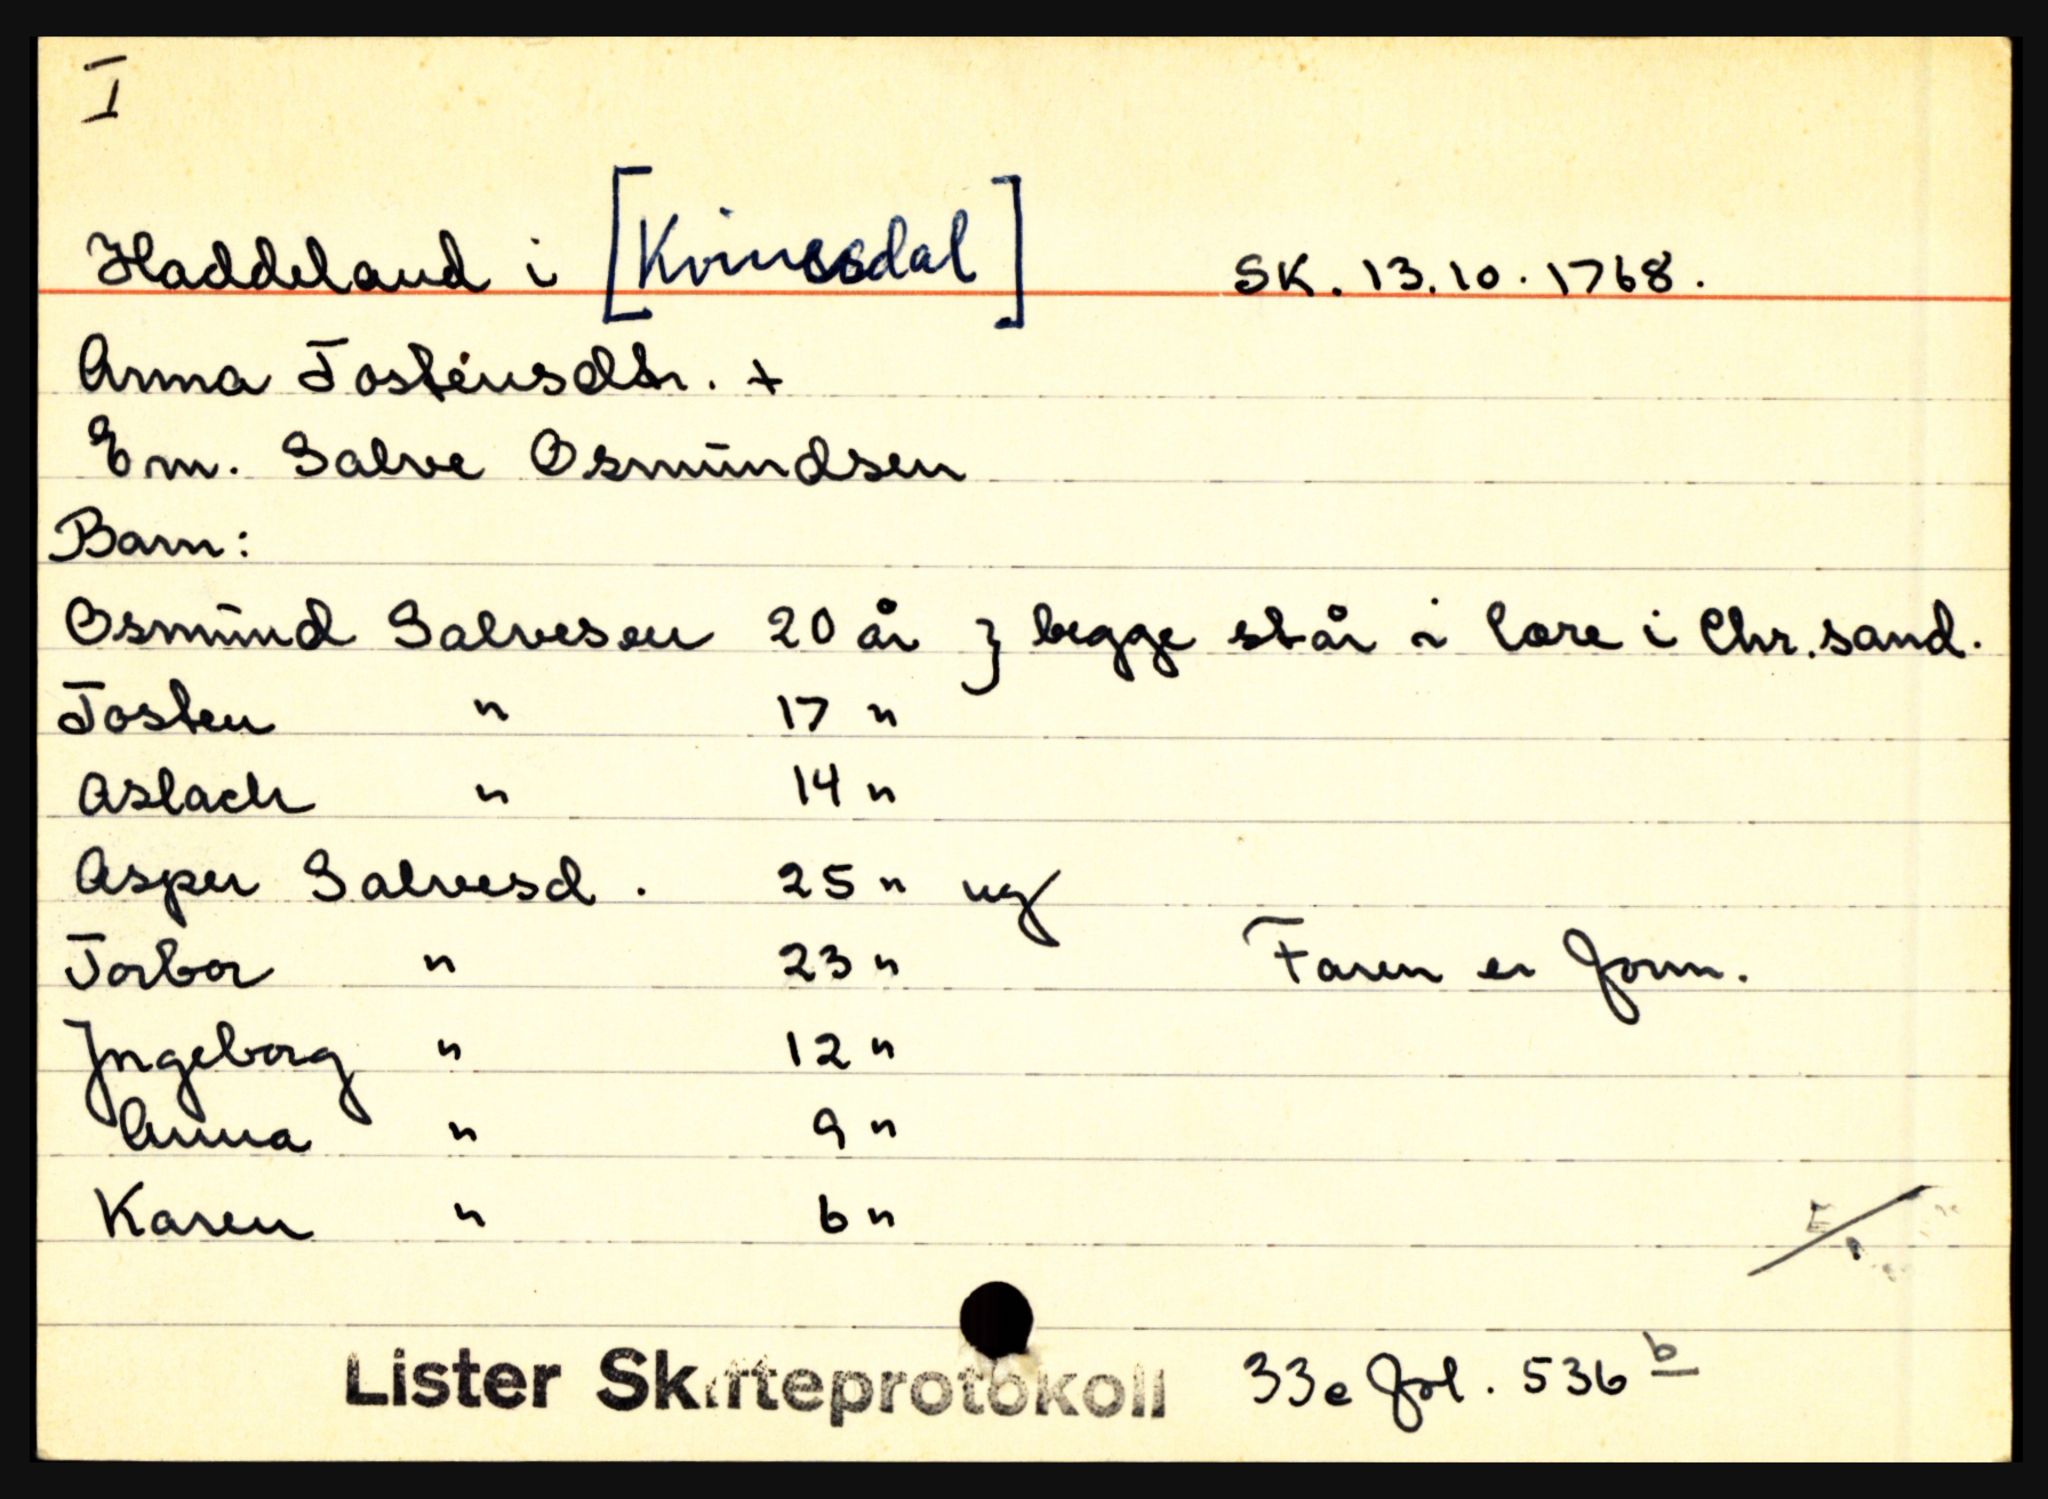 I
Haddeland i [Kvinesdal] SK. 13.10.1768.
Anna Tostensdtr. +
Em. Salve Osmūndsen
Barn:
Osmūnd Salvesen 20 år } begge står i lære i Chr.sand.
Tosten " 17 "
Aslach " 14 "
Asper Salvesd. 25 " ug
Torbor " 23 " Faren er form.
Ingeborg " 12 "
Anna " 9 "
Karen " 6 "
Lister Skifteprotokoll 33e fol. 536 b